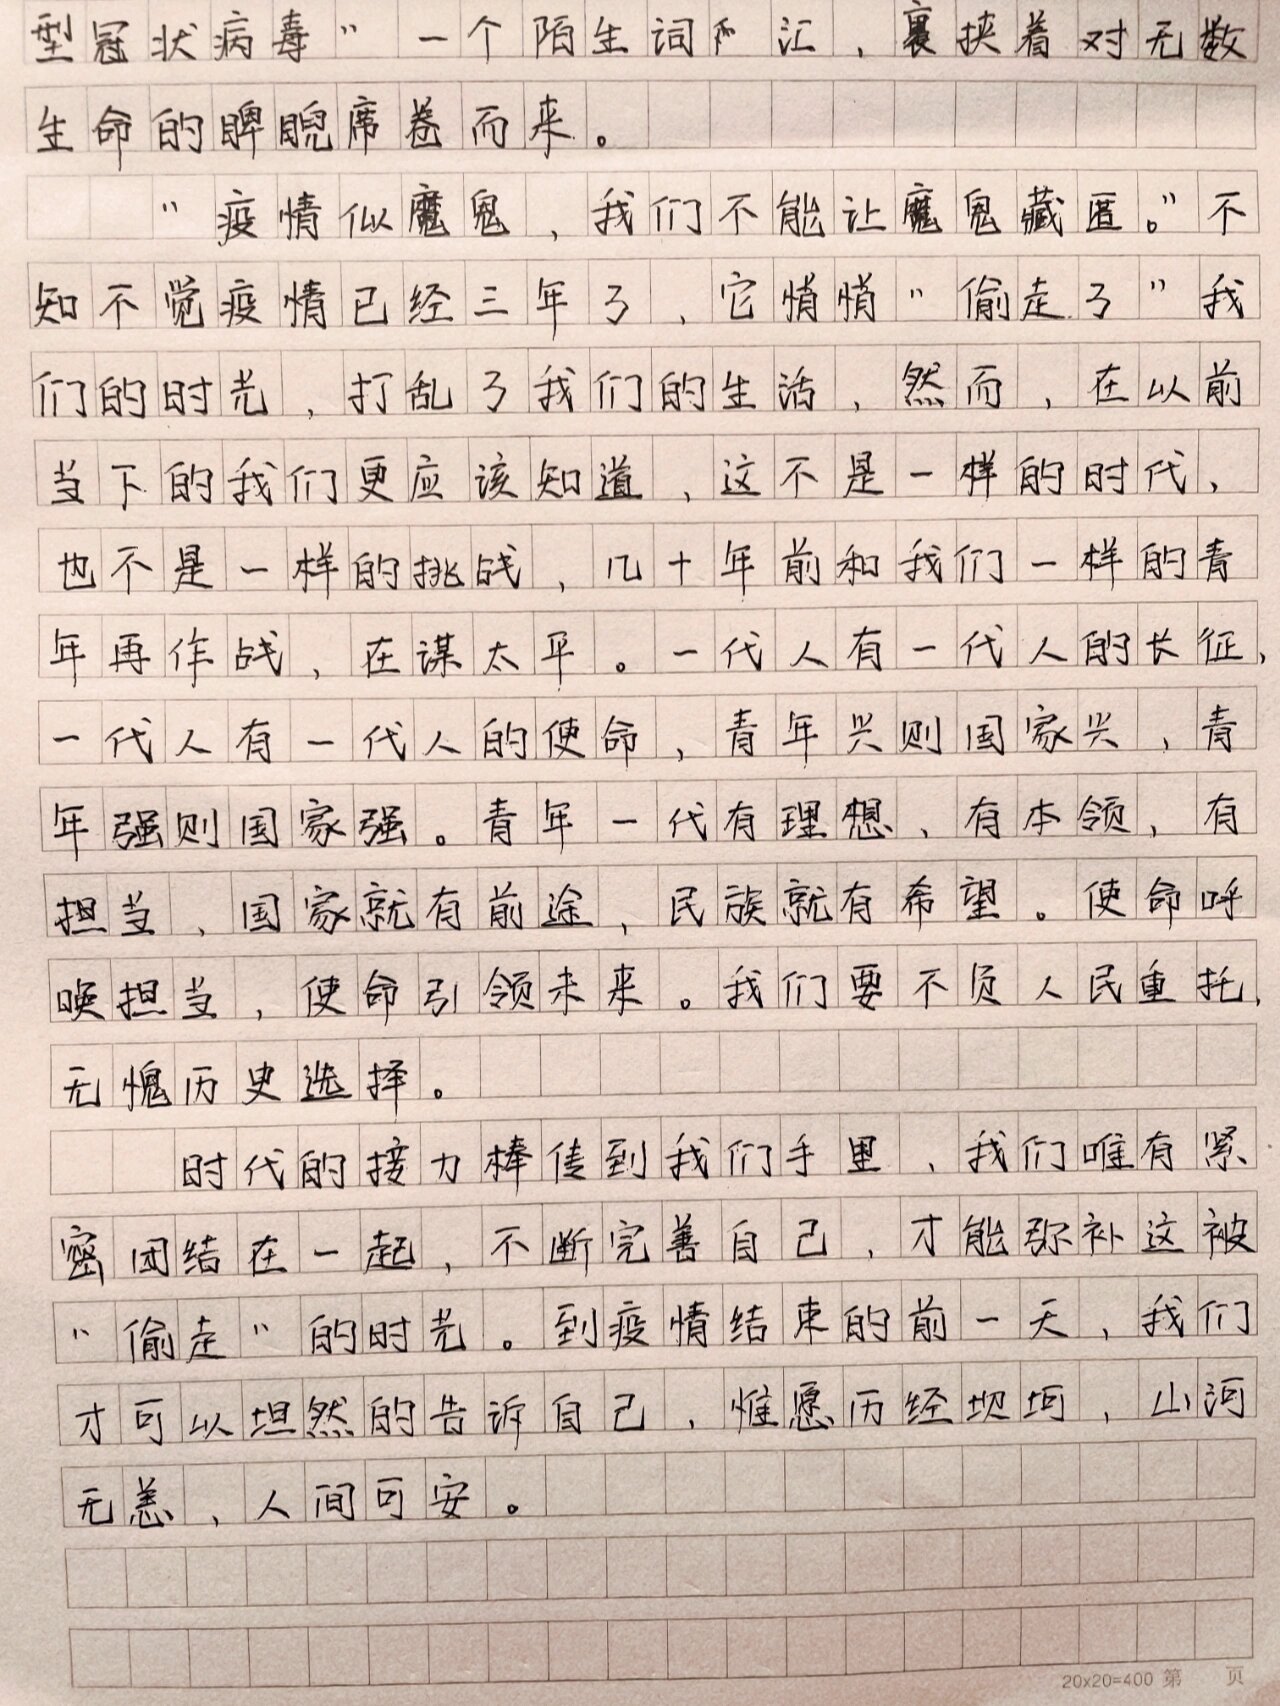 型冠状病毒”一个陌生词汇，裹挟着对无数
生命的睥睨席卷而来。
“疫情似魔鬼，我们不能让魔鬼藏匿。”不
知不觉疫情已经三年了，它悄悄“偷走了”我
们的时光，打乱了我们的生活，然而，在以前
当下的我们更应该知道，这不是一样的时代，
也不是一样的挑战，几十年前和我们一样的青
年再作战，在谋太平。一代人有一代人的长征，
一代人有一代人的使命，青年兴则国家兴，青
年强则国家强。青年一代有理想、有本领，有
担当，国家就有前途，民族就有希望。使命呼
唤担当，使命引领未来。我们要不负人民重托，
无愧历史选择。
时代的接力棒传到我们手里，我们唯有紧
密团结在一起，不断完善自己，才能弥补这被
“偷走”的时光。到疫情结束的前一天，我们
才可以坦然的告诉自己，惟愿历经坝坷，山河
无恙，人间可安。
20x20=400 第 页